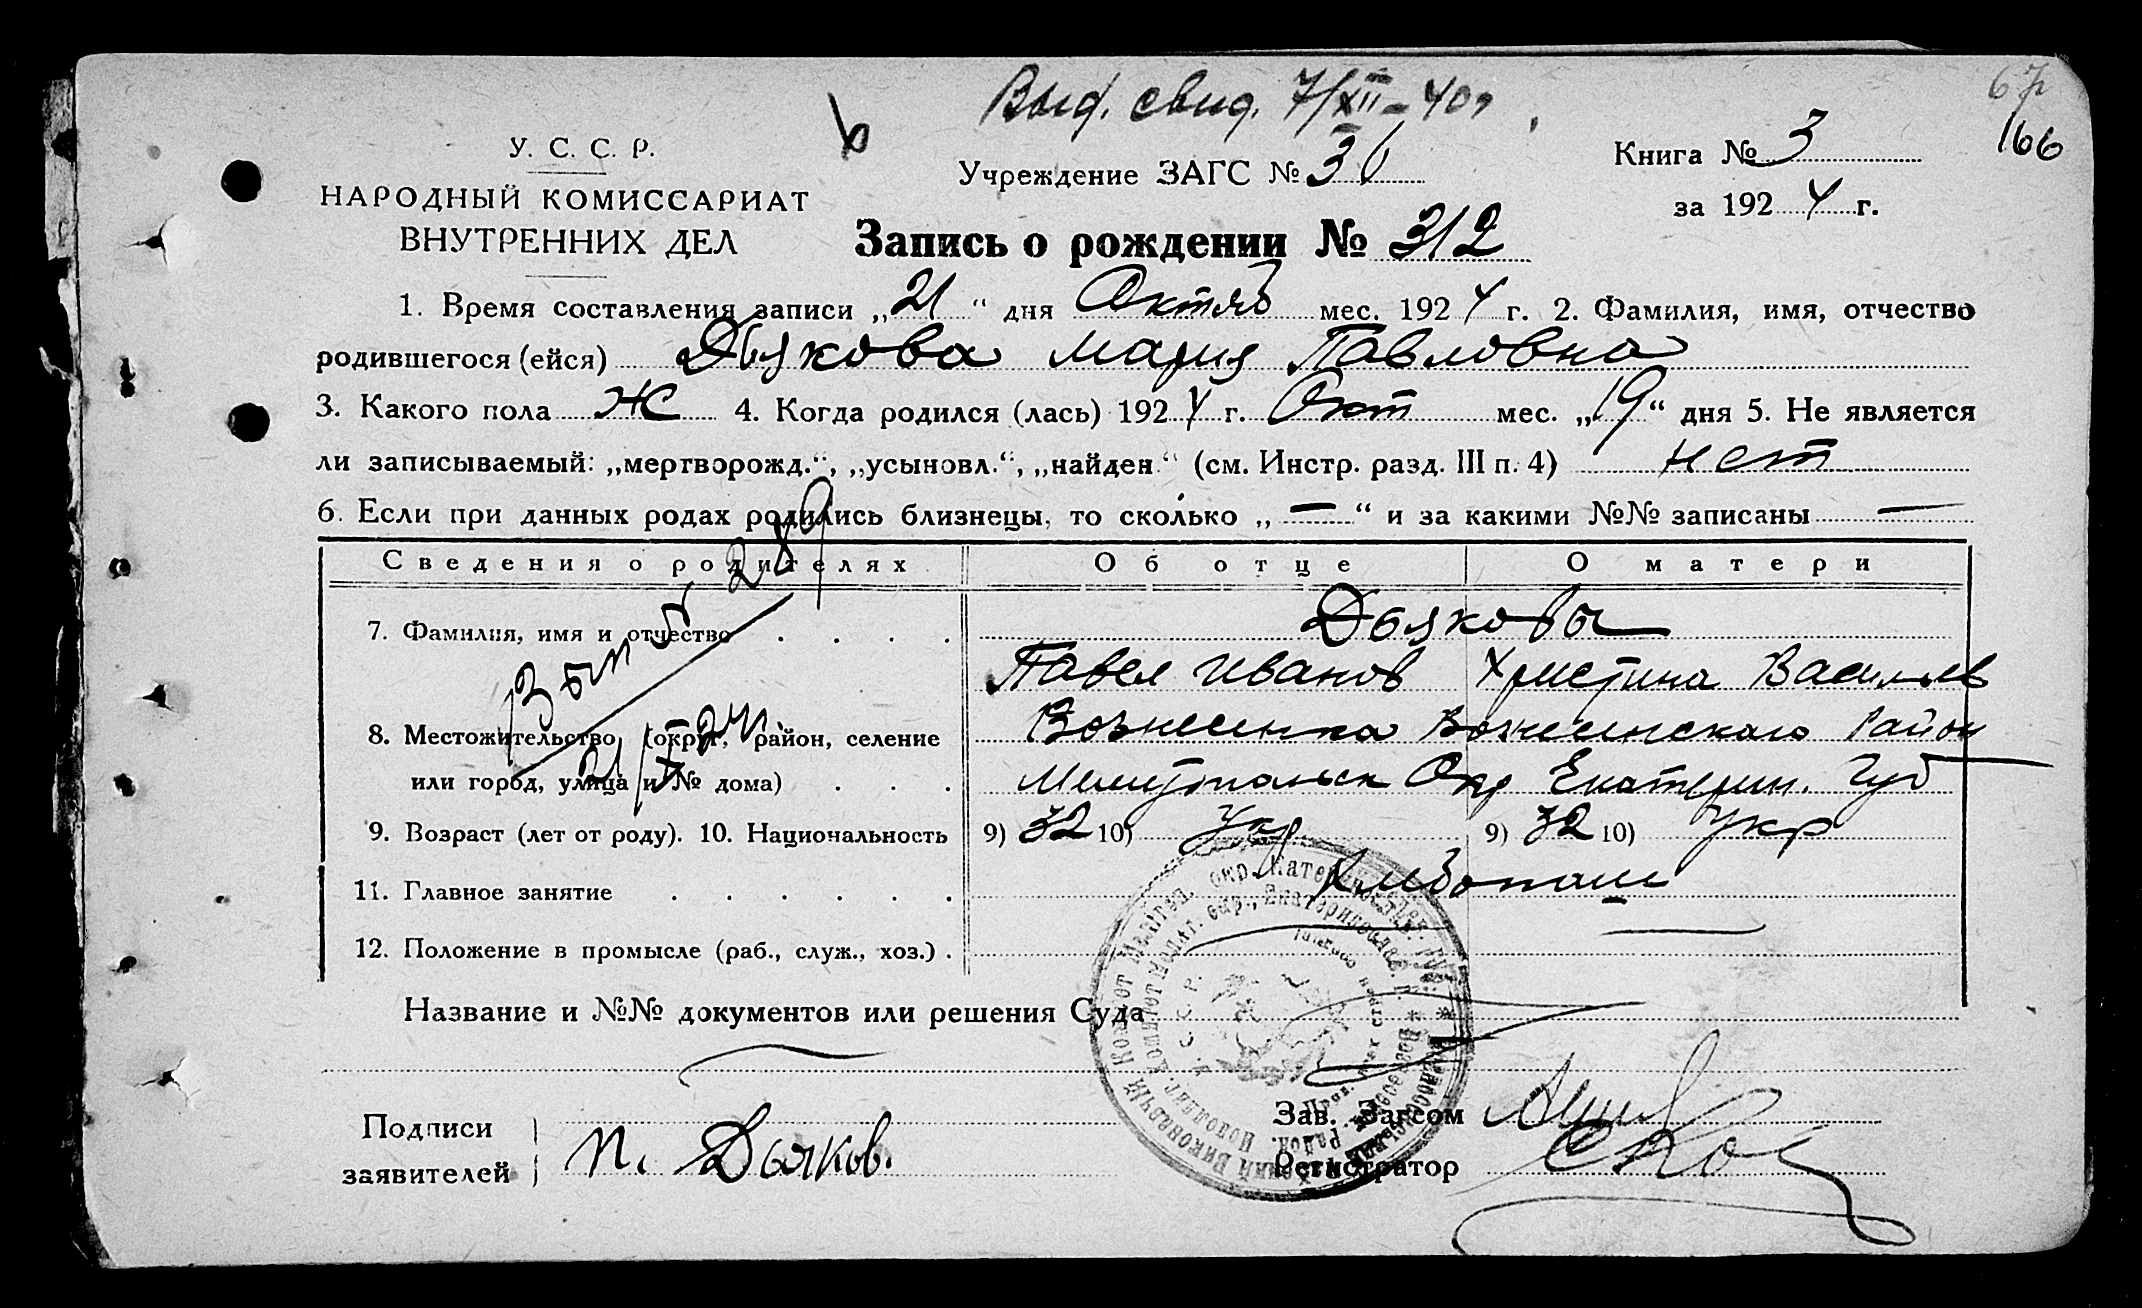 Выд. свид. 7/XII-40г.
67
166
У. С. С. Р.
НАРОДНЫЙ КОМИССАРИАТ
ВНУТРЕННИХ ДЕЛ
Учреждение ЗАГС №
Книга № 3
за 1924 г.
Запись о рождении № 312
1. Время составления записи „21“ дня Октяб мес. 1924 г. 2. Фамилия, имя, отчество
родившегося (ейся) Дьякова Мария Павловна
3. Какого пола Ж 4. Когда родился (лась) 1924 г. Окт мес. „19“ дня 5. Не является
ли записываемый: „мертворожд.“, „усыновл.“, „найден“ (см. Инстр. разд. III п. 4) нет
6. Если при данных родах родились близнецы, то сколько „—“ и за какими №№ записаны —
Сведения о родителях Об отце О матери
289
7. Фамилия, имя и отчество . . . . Дьяковы
Павел Иванов Христина Васильев
8. Местожительство (округ, район, селение Вознесенка Вознесенского Район
или город, улица и № дома) . . . Мелитопольск Окр Екатерин. Губ
9. Возраст (лет от роду). 10. Национальность 9) 32 10) Укр. 9) 32 10) Укр
11. Главное занятие . . . . . . Хлебопаш
12. Положение в промысле (раб., служ., хоз.) .
Название и №№ документов или решения Суда
Подписи
заявителей П. Дьяков.
Зав. Загсом
Регистратор